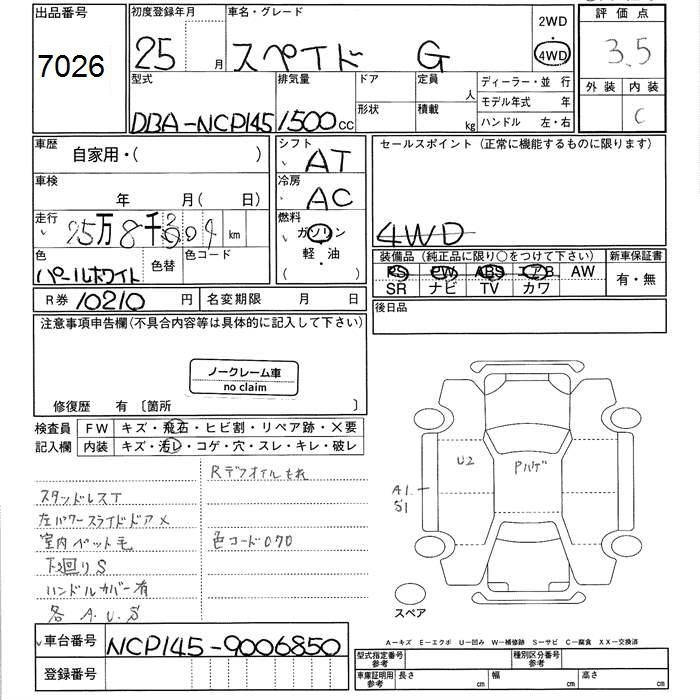 出品番号 初度登録年月 車名・グレード 評価点
7026 25 月 スペイド G 2WD 4WD 3.5
型式 排気量 ドア 定員 人 ディーラー・並 行 外装 内装
DBA-NCP145 1500cc 形状 積載 kg モデル年式 年 C
ハンドル 左・右
車歴 自家用・( ) シフト AT セールスポイント (正常に機能するものに限ります)
車検 年 月( 日) 冷房 AC
走行 km 燃料 ガソリン 4WD
色 パールホワイト 色替 色コード 軽・油 装備品 (純正品に限り○をつけて下さい) 新車保証書
PS PW ABS エアB AW 有・無
R券 10210 円 名変期限 月 日 SR ナビ TV カワ
注意事項申告欄(不具合内容等は具体的に記入して下さい) 後日品
ノークレーム車
no claim
修復歴 有 〔箇所 〕
検査員 FW キズ・飛石・ヒビ割・リペア跡・X要
記入欄 内装 キズ・汚レ・コゲ・穴・スレ・キレ・破レ
Rデフオイルもれ
スタッドレスT
左パワースライドドア×
室内ペット毛 色コード070
下回りS
ハンドルカバー有
各 A.U.S
U2 Pハゲ
A1
S1
スペア
車台番号 NCP145-9006850
A-キズ E-エクボ U-凹み W-補修跡 S-サビ C-腐食 XX-交換済
登録番号 型式指定番号 参考 種別区分番号 参考
車庫証明用 参考 長さ cm 幅 cm 高さ cm